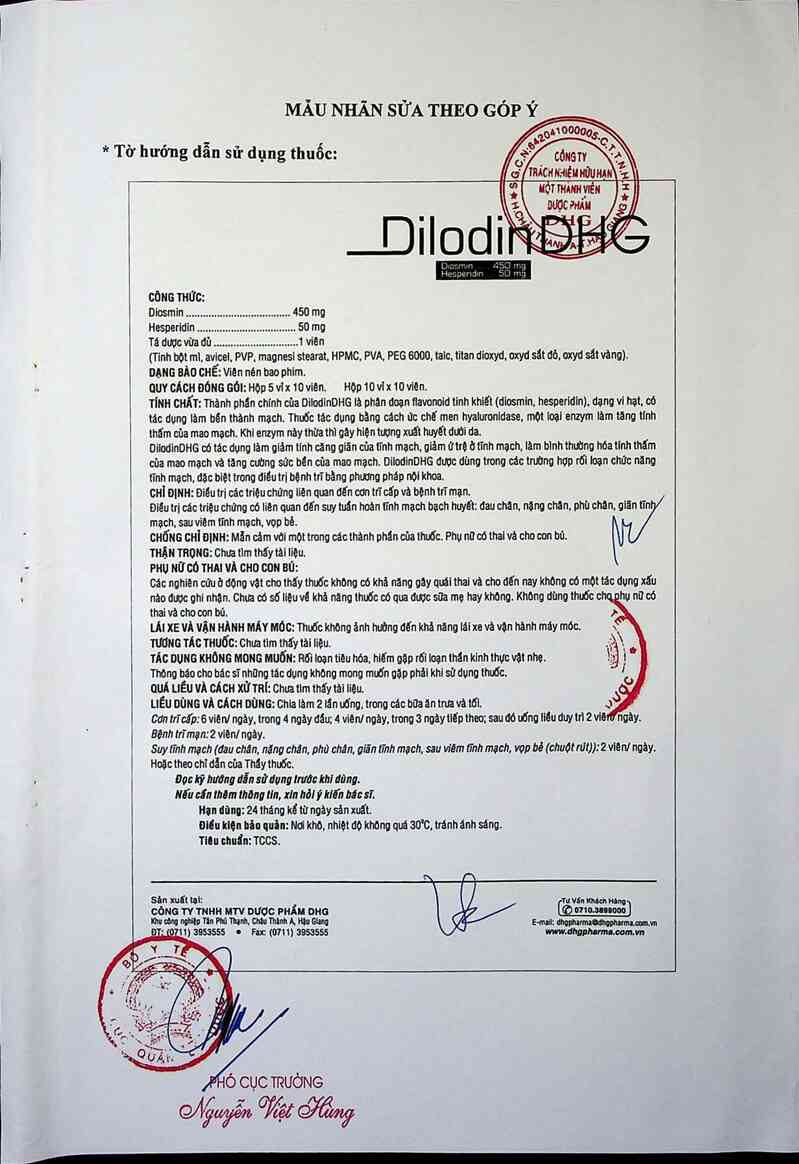 MẪU NHÃN SỬA THEO GÓP Ý
* Tờ hướng dẫn sử dụng thuốc:
CÔNG TY
TRÁCH NHIỆM HỮU HẠN
MỘT THÀNH VIÊN
DƯỢC PHẨM
DHG
DilodinDHG
Diosmin 450 mg
Hesperidin 50 mg
CÔNG THỨC:
Diosmin ..................................... 450 mg
Hesperidin ................................... 50 mg
Tá dược vừa đủ ..............................1 viên
(Tinh bột mì, avicel, PVP, magnesi stearat, HPMC, PVA, PEG 6000, talc, titan dioxyd, oxyd sắt đỏ, oxyd sắt vàng).
DẠNG BÀO CHẾ: Viên nén bao phim.
QUY CÁCH ĐÓNG GÓI: Hộp 5 vỉ x 10 viên. Hộp 10 vỉ x 10 viên.
TÍNH CHẤT: Thành phần chính của DilodinDHG là phân đoạn flavonoid tinh khiết (diosmin, hesperidin), dạng vi hạt, có
tác dụng làm bền thành mạch. Thuốc tác dụng bằng cách ức chế men hyaluronidase, một loại enzym làm tăng tính
thấm của mao mạch. Khi enzym này thừa thì gây hiện tượng xuất huyết dưới da.
DilodinDHG có tác dụng làm giảm tính căng giãn của tĩnh mạch, giảm ứ trệ ở tĩnh mạch, làm bình thường hóa tính thấm
của mao mạch và tăng cường sức bền của mao mạch. DilodinDHG được dùng trong các trường hợp rối loạn chức năng
tĩnh mạch, đặc biệt trong điều trị bệnh trĩ bằng phương pháp nội khoa.
CHỈ ĐỊNH: Điều trị các triệu chứng liên quan đến cơn trĩ cấp và bệnh trĩ mạn.
Điều trị các triệu chứng có liên quan đến suy tuần hoàn tĩnh mạch bạch huyết: đau chân, nặng chân, phù chân, giãn tĩnh
mạch, sau viêm tĩnh mạch, vọp bẻ.
CHỐNG CHỈ ĐỊNH: Mẫn cảm với một trong các thành phần của thuốc. Phụ nữ có thai và cho con bú.
THẬN TRỌNG: Chưa tìm thấy tài liệu.
PHỤ NỮ CÓ THAI VÀ CHO CON BÚ:
Các nghiên cứu ở động vật cho thấy thuốc không có khả năng gây quái thai và cho đến nay không có một tác dụng xấu
nào được ghi nhận. Chưa có số liệu về khả năng thuốc có qua được sữa mẹ hay không. Không dùng thuốc cho phụ nữ có
thai và cho con bú.
LÁI XE VÀ VẬN HÀNH MÁY MÓC: Thuốc không ảnh hưởng đến khả năng lái xe và vận hành máy móc.
TƯƠNG TÁC THUỐC: Chưa tìm thấy tài liệu.
TÁC DỤNG KHÔNG MONG MUỐN: Rối loạn tiêu hóa, hiếm gặp rối loạn thần kinh thực vật nhẹ.
Thông báo cho bác sĩ những tác dụng không mong muốn gặp phải khi sử dụng thuốc.
QUÁ LIỀU VÀ CÁCH XỬ TRÍ: Chưa tìm thấy tài liệu.
LIỀU DÙNG VÀ CÁCH DÙNG: Chia làm 2 lần uống, trong các bữa ăn trưa và tối.
Cơn trĩ cấp: 6 viên/ ngày, trong 4 ngày đầu; 4 viên/ ngày, trong 3 ngày tiếp theo; sau đó uống liều duy trì 2 viên/ ngày.
Bệnh trĩ mạn: 2 viên/ ngày.
Suy tĩnh mạch (đau chân, nặng chân, phù chân, giãn tĩnh mạch, sau viêm tĩnh mạch, vọp bẻ (chuột rút)): 2 viên/ ngày.
Hoặc theo chỉ dẫn của Thầy thuốc.
Đọc kỹ hướng dẫn sử dụng trước khi dùng.
Nếu cần thêm thông tin, xin hỏi ý kiến bác sĩ.
Hạn dùng: 24 tháng kể từ ngày sản xuất.
Điều kiện bảo quản: Nơi khô, nhiệt độ không quá 30°C, tránh ánh sáng.
Tiêu chuẩn: TCCS.
Sản xuất tại:
CÔNG TY TNHH MTV DƯỢC PHẨM DHG
Khu công nghiệp Tân Phú Thạnh, Châu Thành A, Hậu Giang
ĐT: (0711) 3953555 • Fax: (0711) 3953555
Tư Vấn Khách Hàng
0710.3899000
E-mail: dhgpharma@dhgpharma.com.vn
www.dhgpharma.com.vn
BỘ Y TẾ
CỤC QUẢN
PHÓ CỤC TRƯỞNG
Nguyễn Việt Hùng